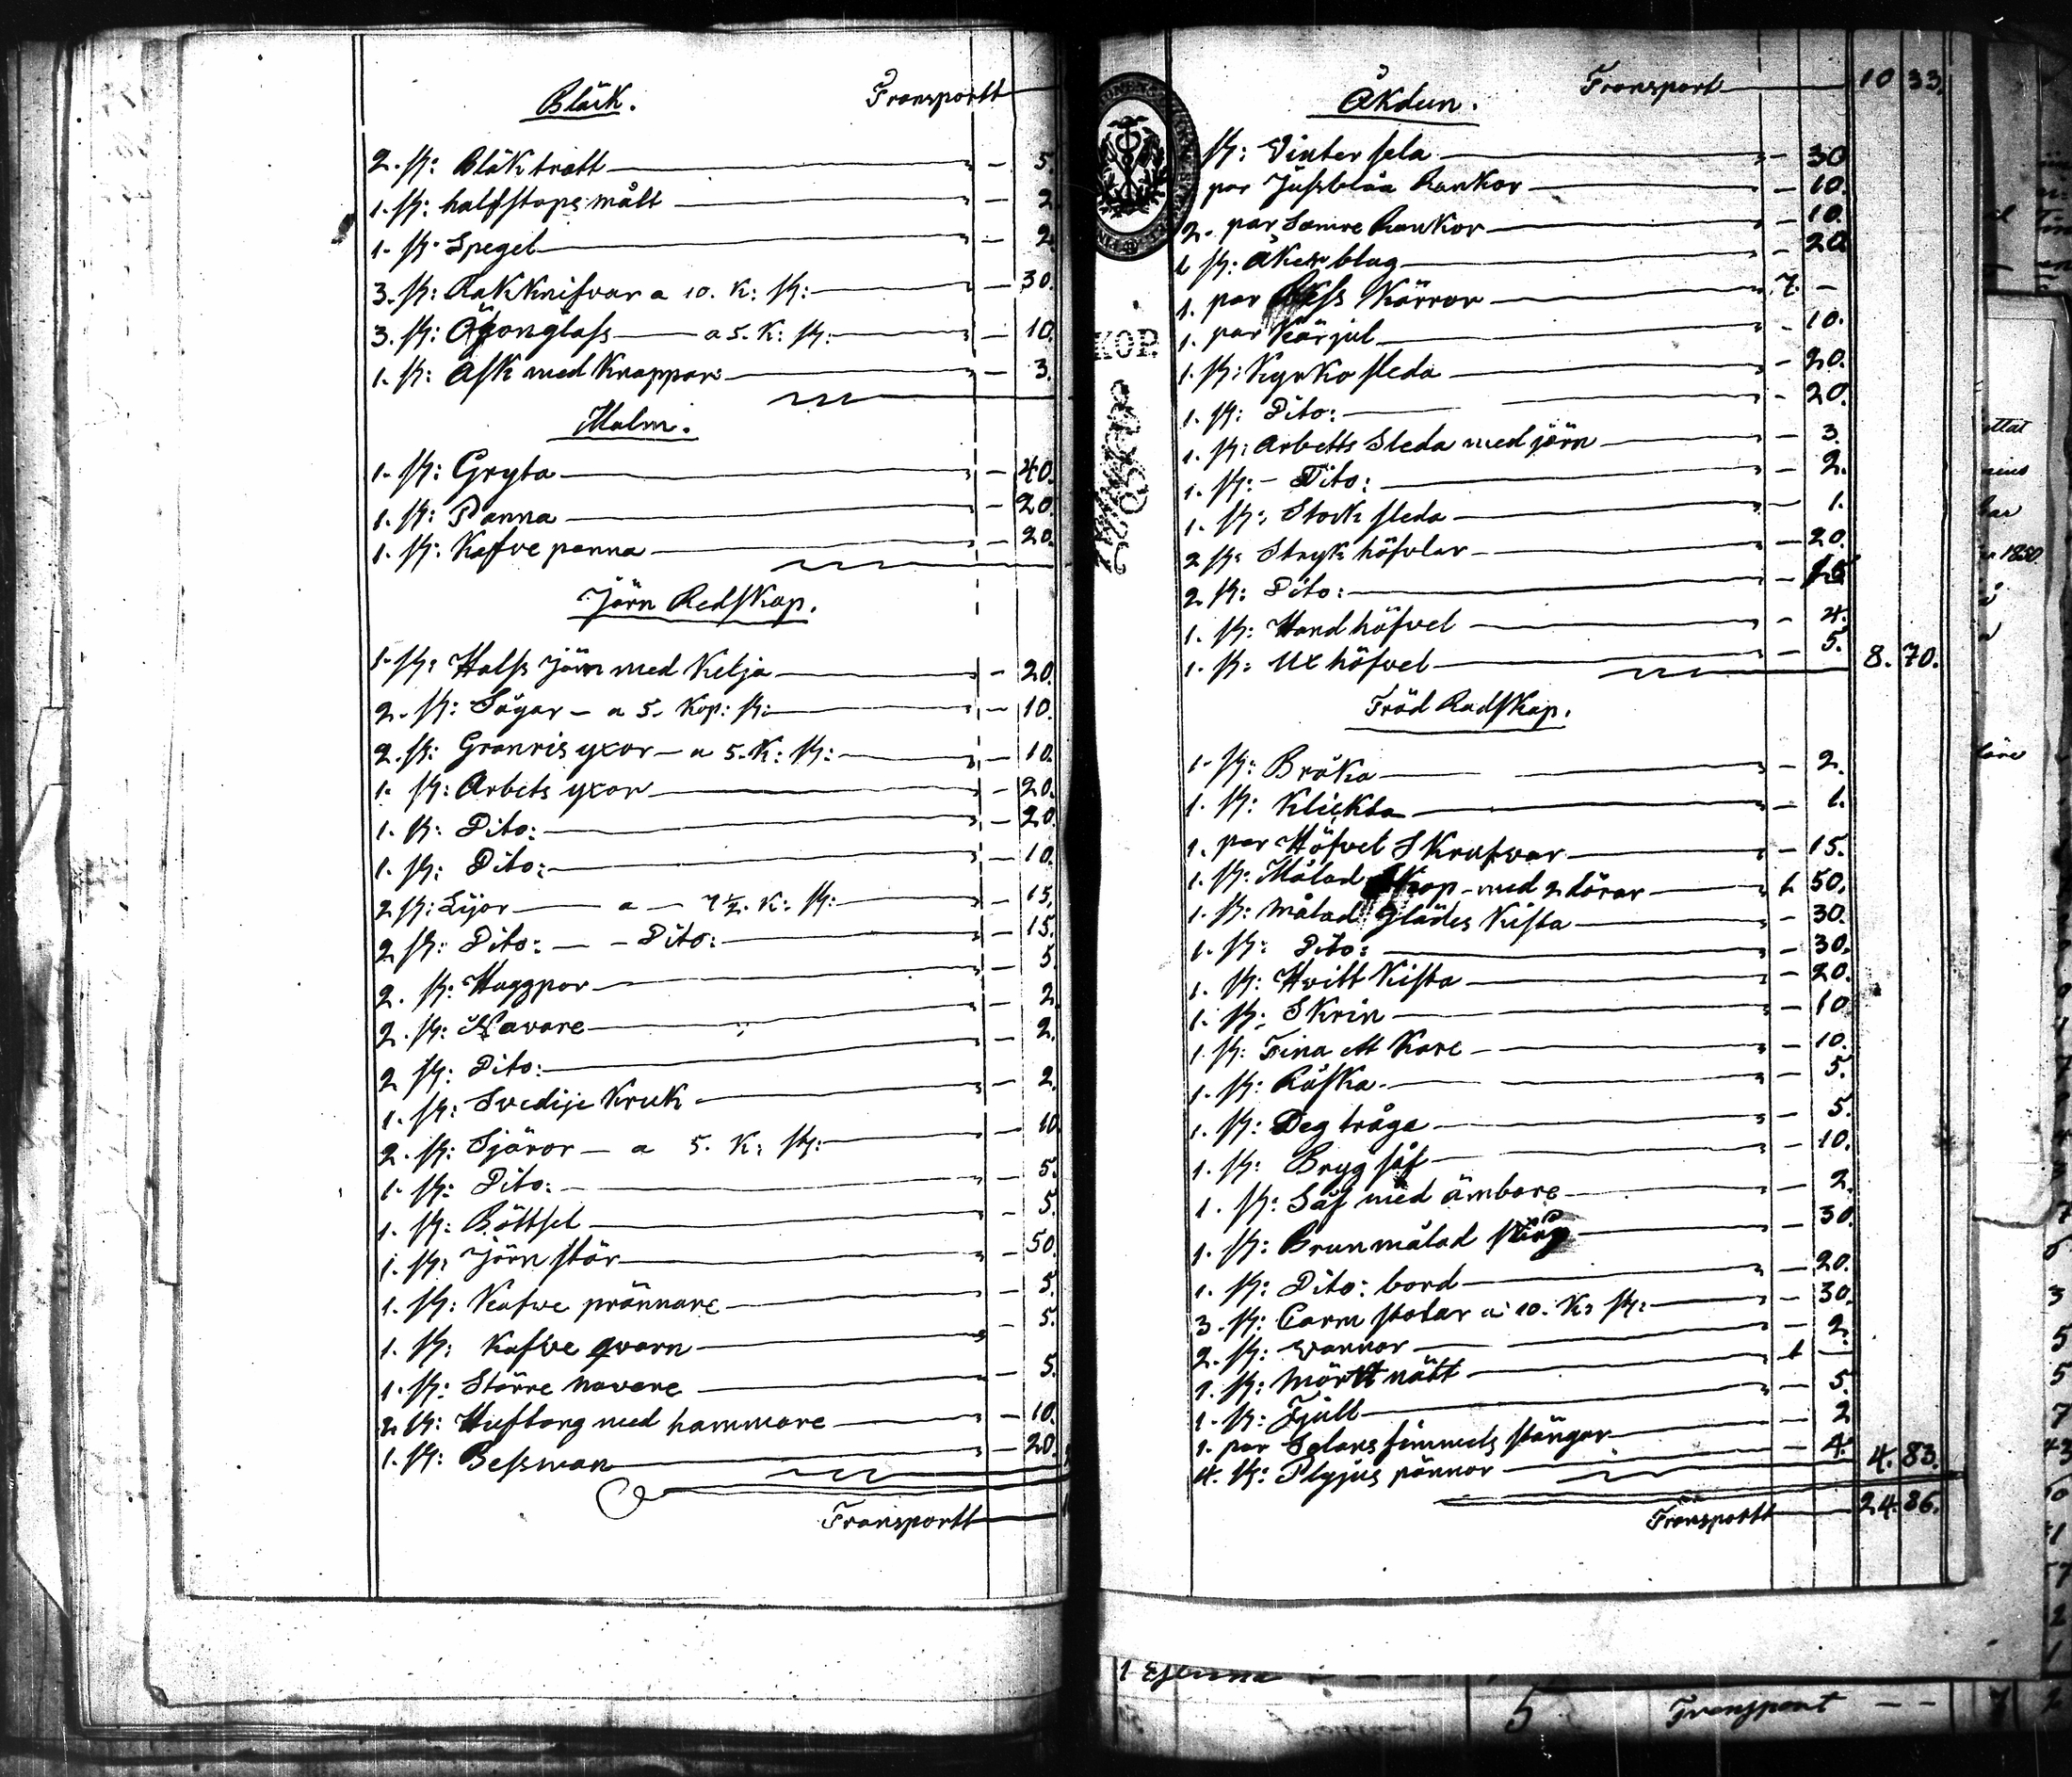 Bläck. Transportt
2. st: Bläk tratt — 5.
1. st: halfstops mått — 2.
1. st: Spegel — 2.
3. st: Rakknifvar a 10. K: st: — 30.
3. st: Ögonglass — a 5. K: st: — 10.
1. st: Ask med Knappar — 3.
Malm.
1. st: Gryta — 40.
1. st: Panna — 20.
1. st: Kaffve panna — 20.
Järn Redskap.
1. st: Halfs Järn med Kelja — 20.
2. st: Sågar — a 5. Kop: st: — 10.
2. st: Granris yxor — a 5. K: st: — 10.
1. st: Arbets yxor — 20.
1. st: Dito: — 20.
1. st: Dito: — 10.
2 st: Lijor — a — 7½. K: st: — 15.
2 st: Dito: — Dito: — 15.
2. st: Huggpor — 5.
2. st: Navare — 2.
2 st: Dito: — 2.
1. st: Svedije Kruk — 2.
2. st: Sjäror — a 5. K: st: — 10.
1. st: Dito: — 5.
1. st: Böttsel — 5.
1. st: Järn stör — 50.
1. st: Kafwe prännare — 5.
1. st: Kafwe qvarn — 5.
1. st: Större navare — 5.
2 st: Huftång med hammare — 10.
1. st: Bessman — 20.
Transportt
Åkdun. Transport — 10 33.
st: Vinter sela — 30
par Jusblåa Rankor — 10.
2. par Samre Rankor — 10.
1 st: Åker blog — 20
1. par Kärror — 7. —
1. par Kärjul — 10.
1. st: Kyrko sleda — 20.
1. st: Dito: — 20.
1. st: Arbetts Sleda med järn — 3.
1. st: — Dito: — 2.
1. st: Stock sleda — 1.
2 st: Stryk höfvlar — 20.
2 st: Dito: — 15
1. st: Hand höfvel — 4.
1. st: Ux höfvel — 5. 8. 70.
Träd Radskap.
1. st: Bråka — 2.
1. st: Klickta — 1.
1. par Höfvel Skrufvar — 15.
1. st: Målad Skop — med 2 dörar — 1. 50.
1. st: Målad Glädes Kista — 30.
1. st: Dito: — 30.
1. st: Hvitt Kista — 20.
1. st: Skrin — 10
1. st: Tina ett Kare — 10.
1. st: Räska — 5.
1. st: Deg tråga — 5.
1. st: Bryg såf — 10.
1. st: Såf med ämbare — 2.
1. st: Brun målad — 30.
1. st: Dito: bord — 20.
3. st: Carm stolar a 10. K: st: — 30.
2. st: vannor — 2.
1. st: Mörtt nätt — 1 —
1. st: Tjull — 5.
1. par Solans simmels stänger — 2
4. st: Plyjus pännor — 4. 4. 83.
Transportt — 24. 86.
KOP.
1
5 Transport — —